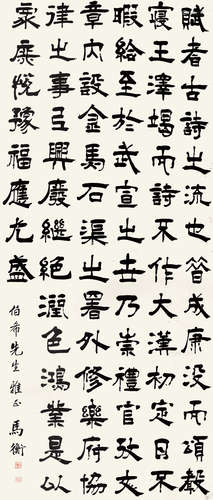 賦者古詩之流也昔成康沒而頌聲
寢王澤竭而詩不作大漢初定日不
暇給至於武宣之世乃崇禮官攷文
章內設金馬石渠之署外修樂府協
律之事以興廢繼絕潤色鴻業是以
眾庶悅豫福應尤盛
伯希先生雅正 馬衡